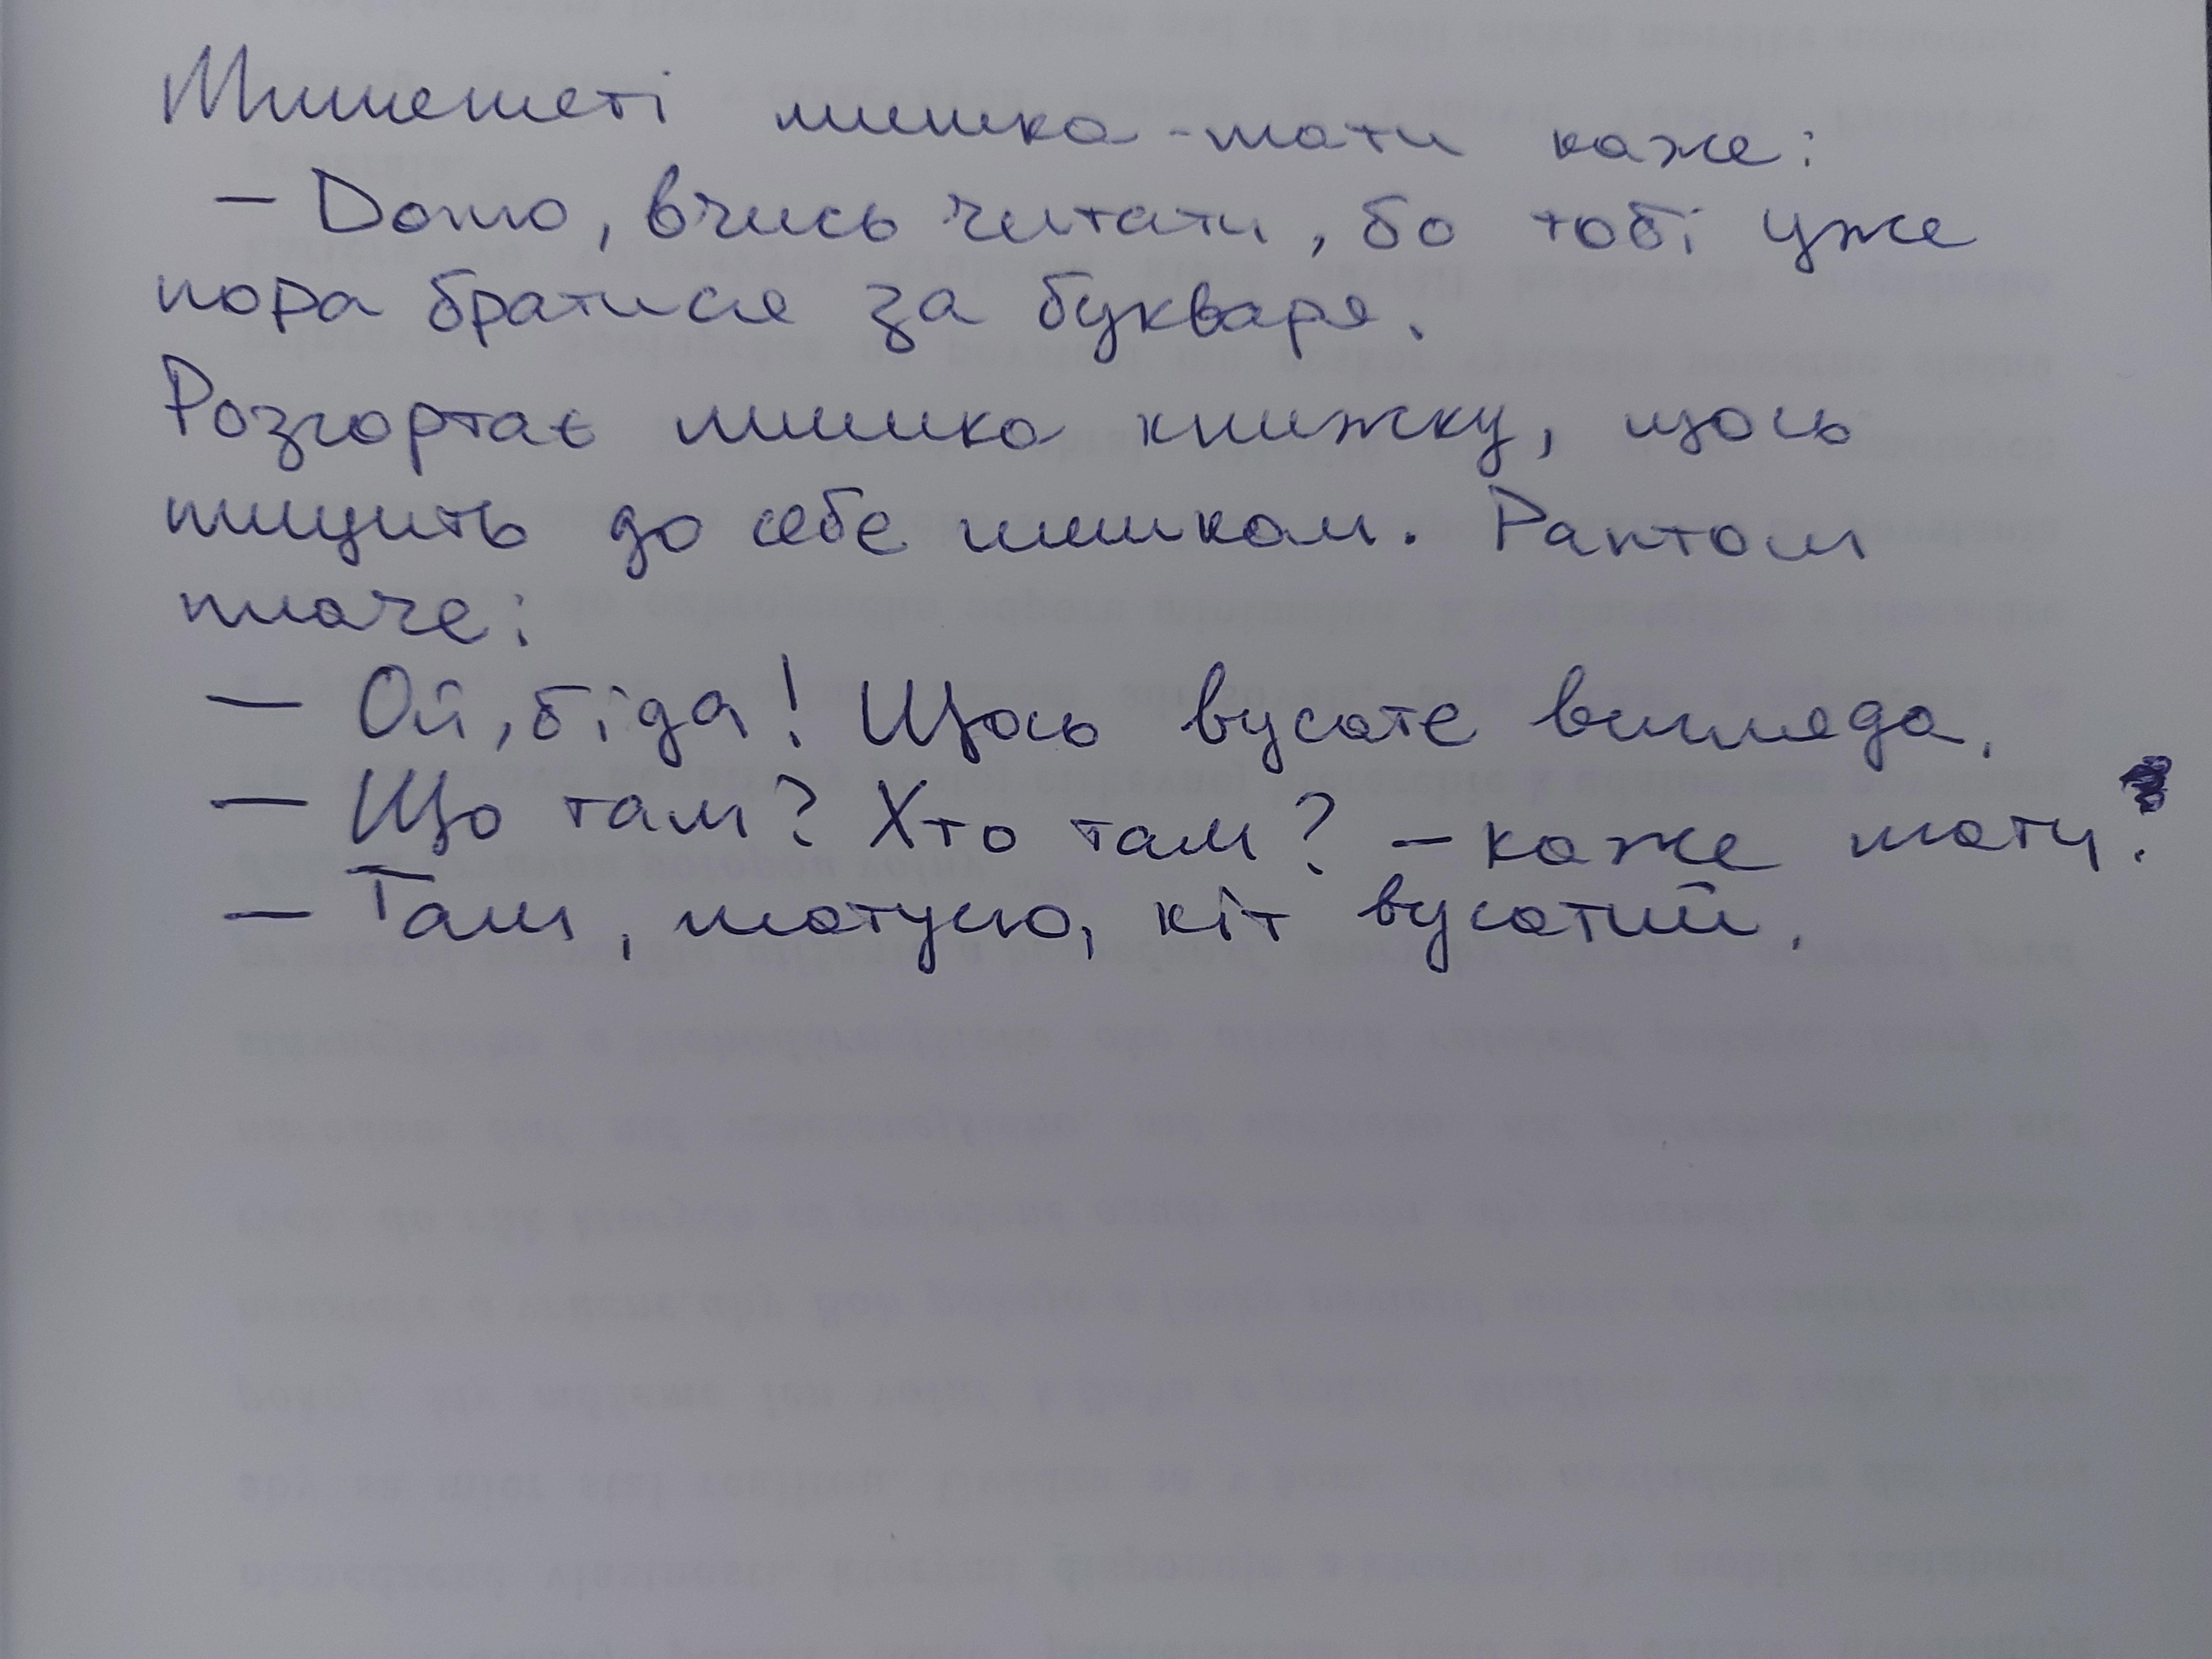 Мишеняті мишка-мати каже:
– Доню, вчись читати, бо тобі уже
пора братися за букваря.
Розгортає мишка книжку, щось
пищить до себе нишком. Раптом
плаче:
– Ой, біда! Щось вусате вигляда.
– Що там? Хто там? – каже мати.
– Там, матусю, кіт вусатий.